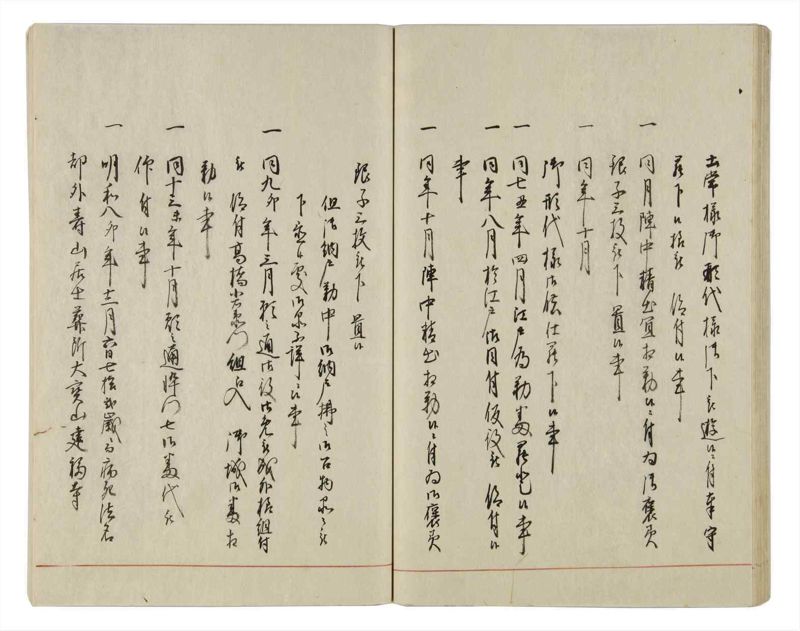 出常様御形代様御下被遊候ニ付奉守
罷下候格被 仰付候事
一 同月陣中精出宜相勤候ニ付為御褒美
銀子三枚被下置候事
一 同年十月
御形代様御供仕罷下候事
一 同七丑年四月江戸為勤番罷登候事
一 同年八月於江戸御目付仮役被 仰付候
事
一 同年十月陣中精出相勤候ニ付為御褒美
銀子三枚被下置候
但御納戸勤中御納戸拂之御召物品々被
下置候
一 同九卯年三月願之通御役御免被成外格組付
被 仰付高橋 門組に入 御城御番相
勤候事
一 同十三未年十月願之通悴門七御番代被
仰付候事
一 明和八卯年十二月六日七拾弐歳ニ而病死法名
却外寿山居士葬所大寶山建福寺